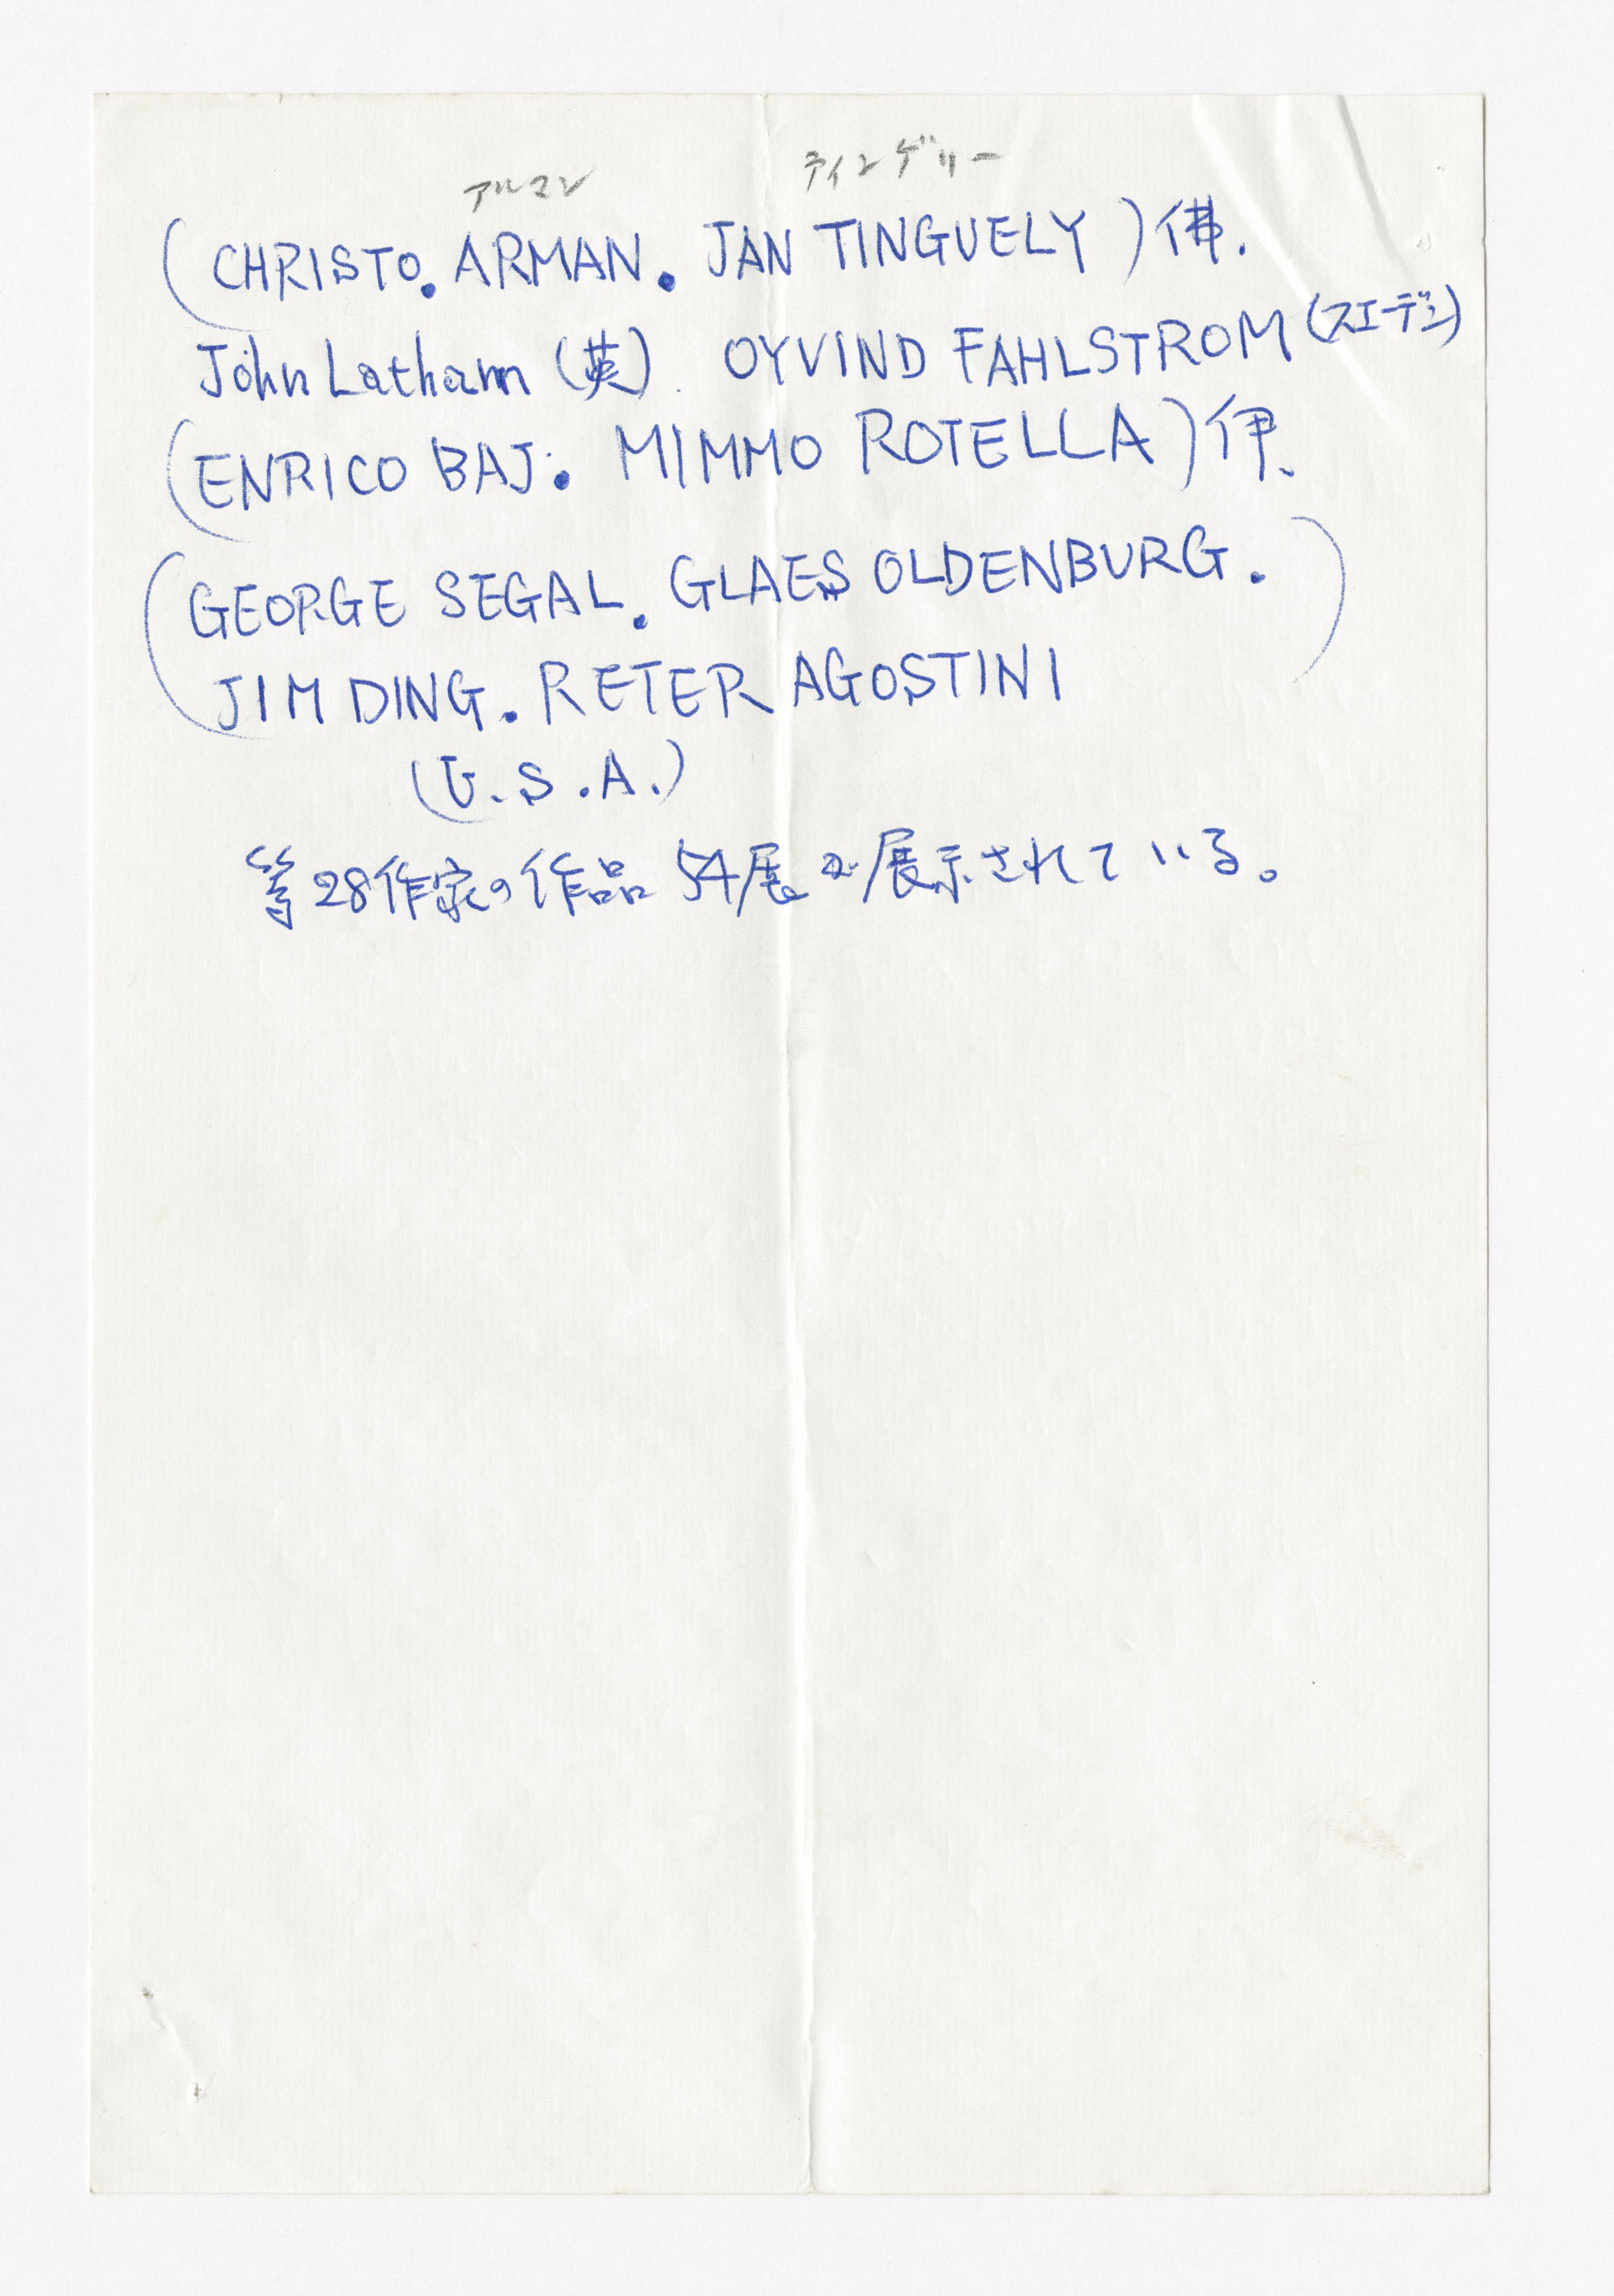 アルマン ティンゲリー
(CHRISTO. ARMAN. JAN TINGUELY) 佛.
John Latham (英). OYVIND FAHLSTROM (スエーデン)
(ENRICO BAJ. MIMMO ROTELLA) 伊、
(GEORGE SEGAL. GLAES OLDENBURG.
JIM DING. RETER AGOSTINI)
(U.S.A.)
等28作家の作品 54展が展示されている。